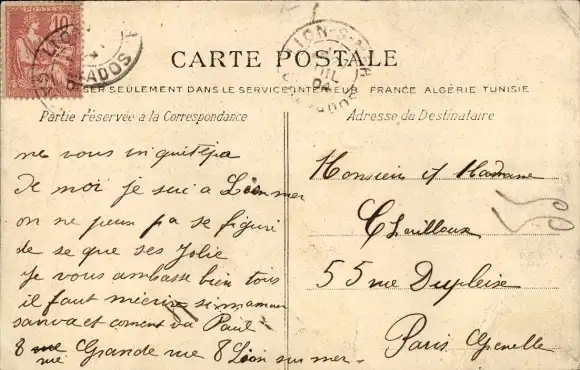 POSTES
10
LION-S-MER
CALVADOS
CARTE POSTALE
SER SEULEMENT DANS LE SERVICE INTERIEUR FRANCE ALGÉRIE TUNISIE
Partie réservée à la Correspondance
Adresse du Destinataire
ne vous inquietepa
De moi je sui a Lion mer
on ne peux pa se figuré
de se que ses Jolie
Je vous ambasse bien tous
il faut mécrire si maman
sanva et coment va Paul
8 rue Grande rue 8 Lion sur mer.
Monsieur et Madame
55 rue Dupleixe
Paris Grenelle
55